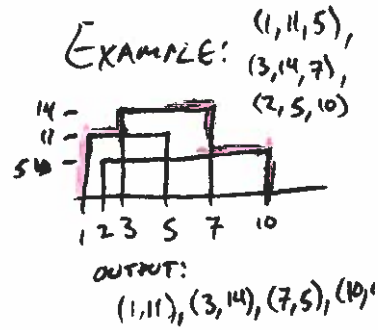 EXAMPLE:
(1,11,5),
(3,14,7),
(2,5,10)
14
11
5
1 2 3 5 7 10
OUTPUT:
(1,11), (3,14), (7,5), (10,